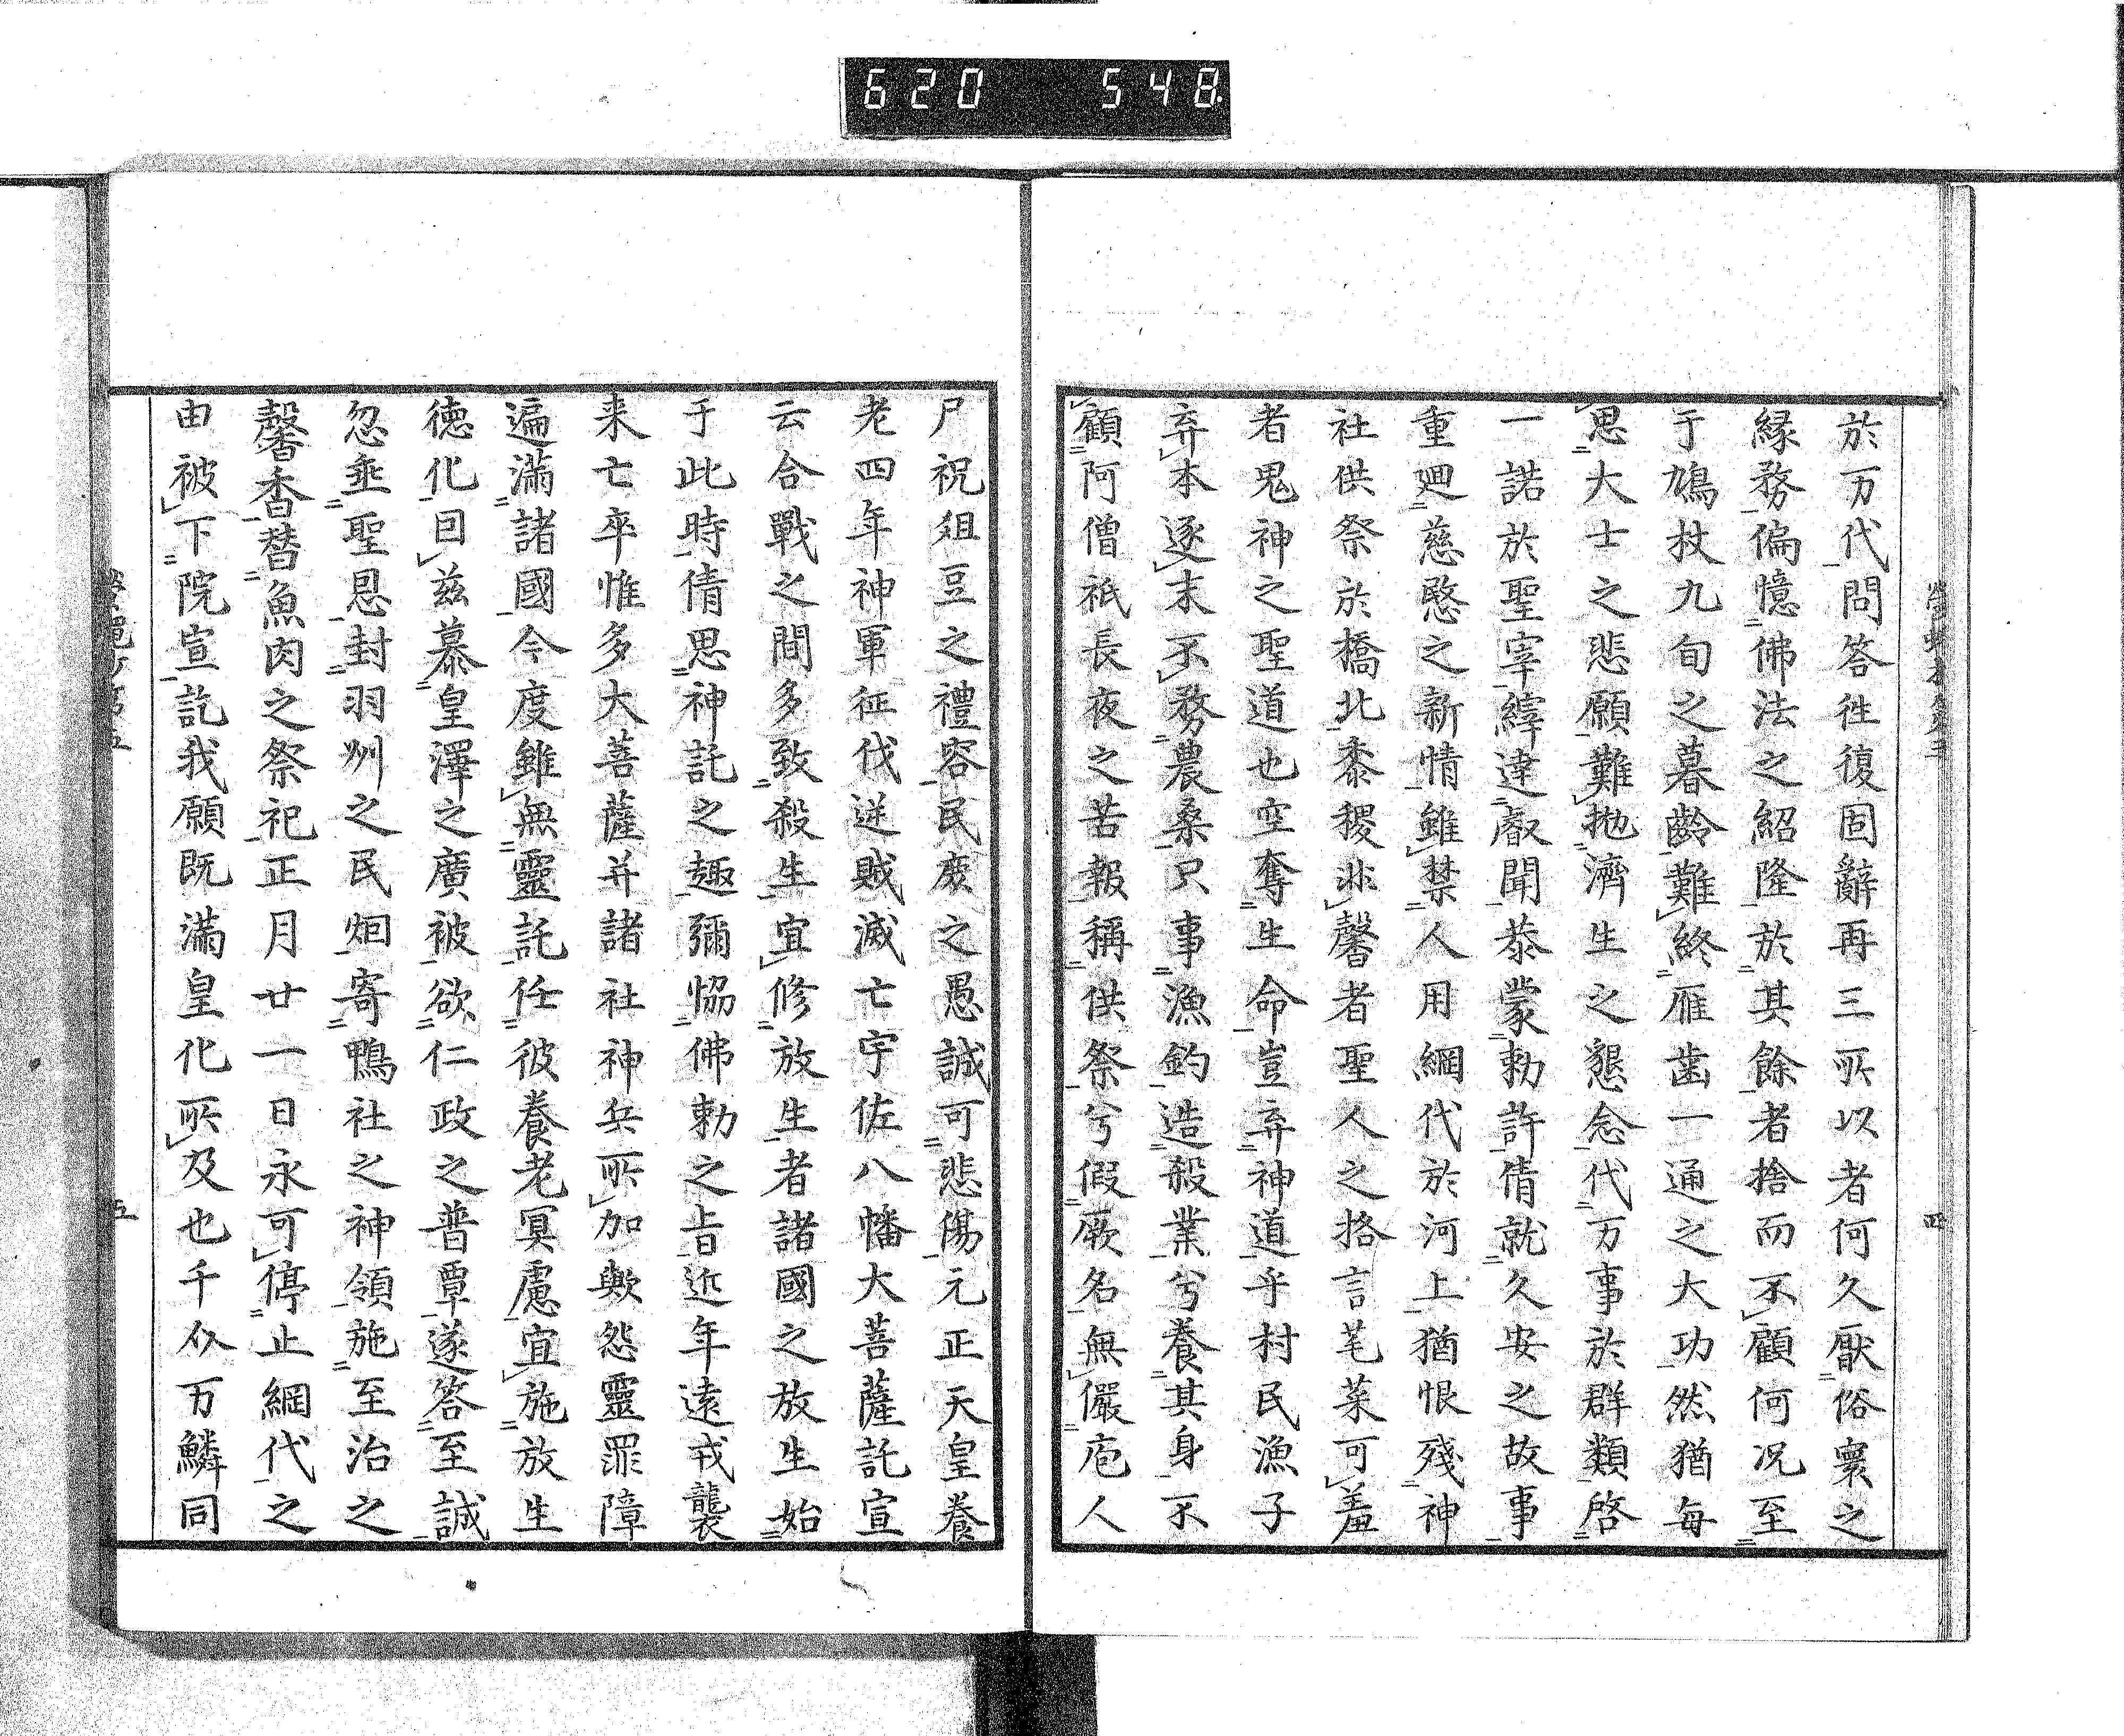 620 548.
於万代問答徃復固辭再三所以者何久厭俗寰之
緣務偏憶佛法之紹隆於其餘者捨而不顧何况至
于鳩杖九旬之暮齡難終雁歯一通之大功然猶每
思大士之悲願難抛濟生之懇念代万事於群類啓
一諾於聖宰縡達叡聞恭蒙勅許倩就久安之故事
重廻慈愍之新情雖禁人用網代於河上猶恨殘神
社供祭於橋北黍稷非馨者聖人之格言芼菜可羞
者鬼神之聖道也空奪生命豈弃神道乎村民漁子
弃本逐末不務農桑只事漁釣造殺業兮養其身不
顧阿僧祇長夜之苦報稱供祭兮假厥名無儼庖人
尸祝俎豆之禮容民廢之愚誠可悲傷元正天皇養
老四年神軍征伐逆賊滅亡宇佐八幡大菩薩託宣
云合戰之間多致殺生宜修放生者諸國之放生始
于此時倩思神託之趣彌恊佛勅之旨近年遠戎襲
来亡卒惟多大菩薩并諸社神兵所加歟怨靈罪障
遍滿諸國今度雖無靈託任彼養老冥慮宜施放生
德化因茲慕皇澤之廣被欲仁政之普覃遂答至誠
忽垂聖恩封羽州之民烟寄鴨社之神領施至治之
馨香替魚肉之祭祀正月廿一日永可停止網代之
由被下院宣訖我願既滿皇化所及也千仞万鱗同
五